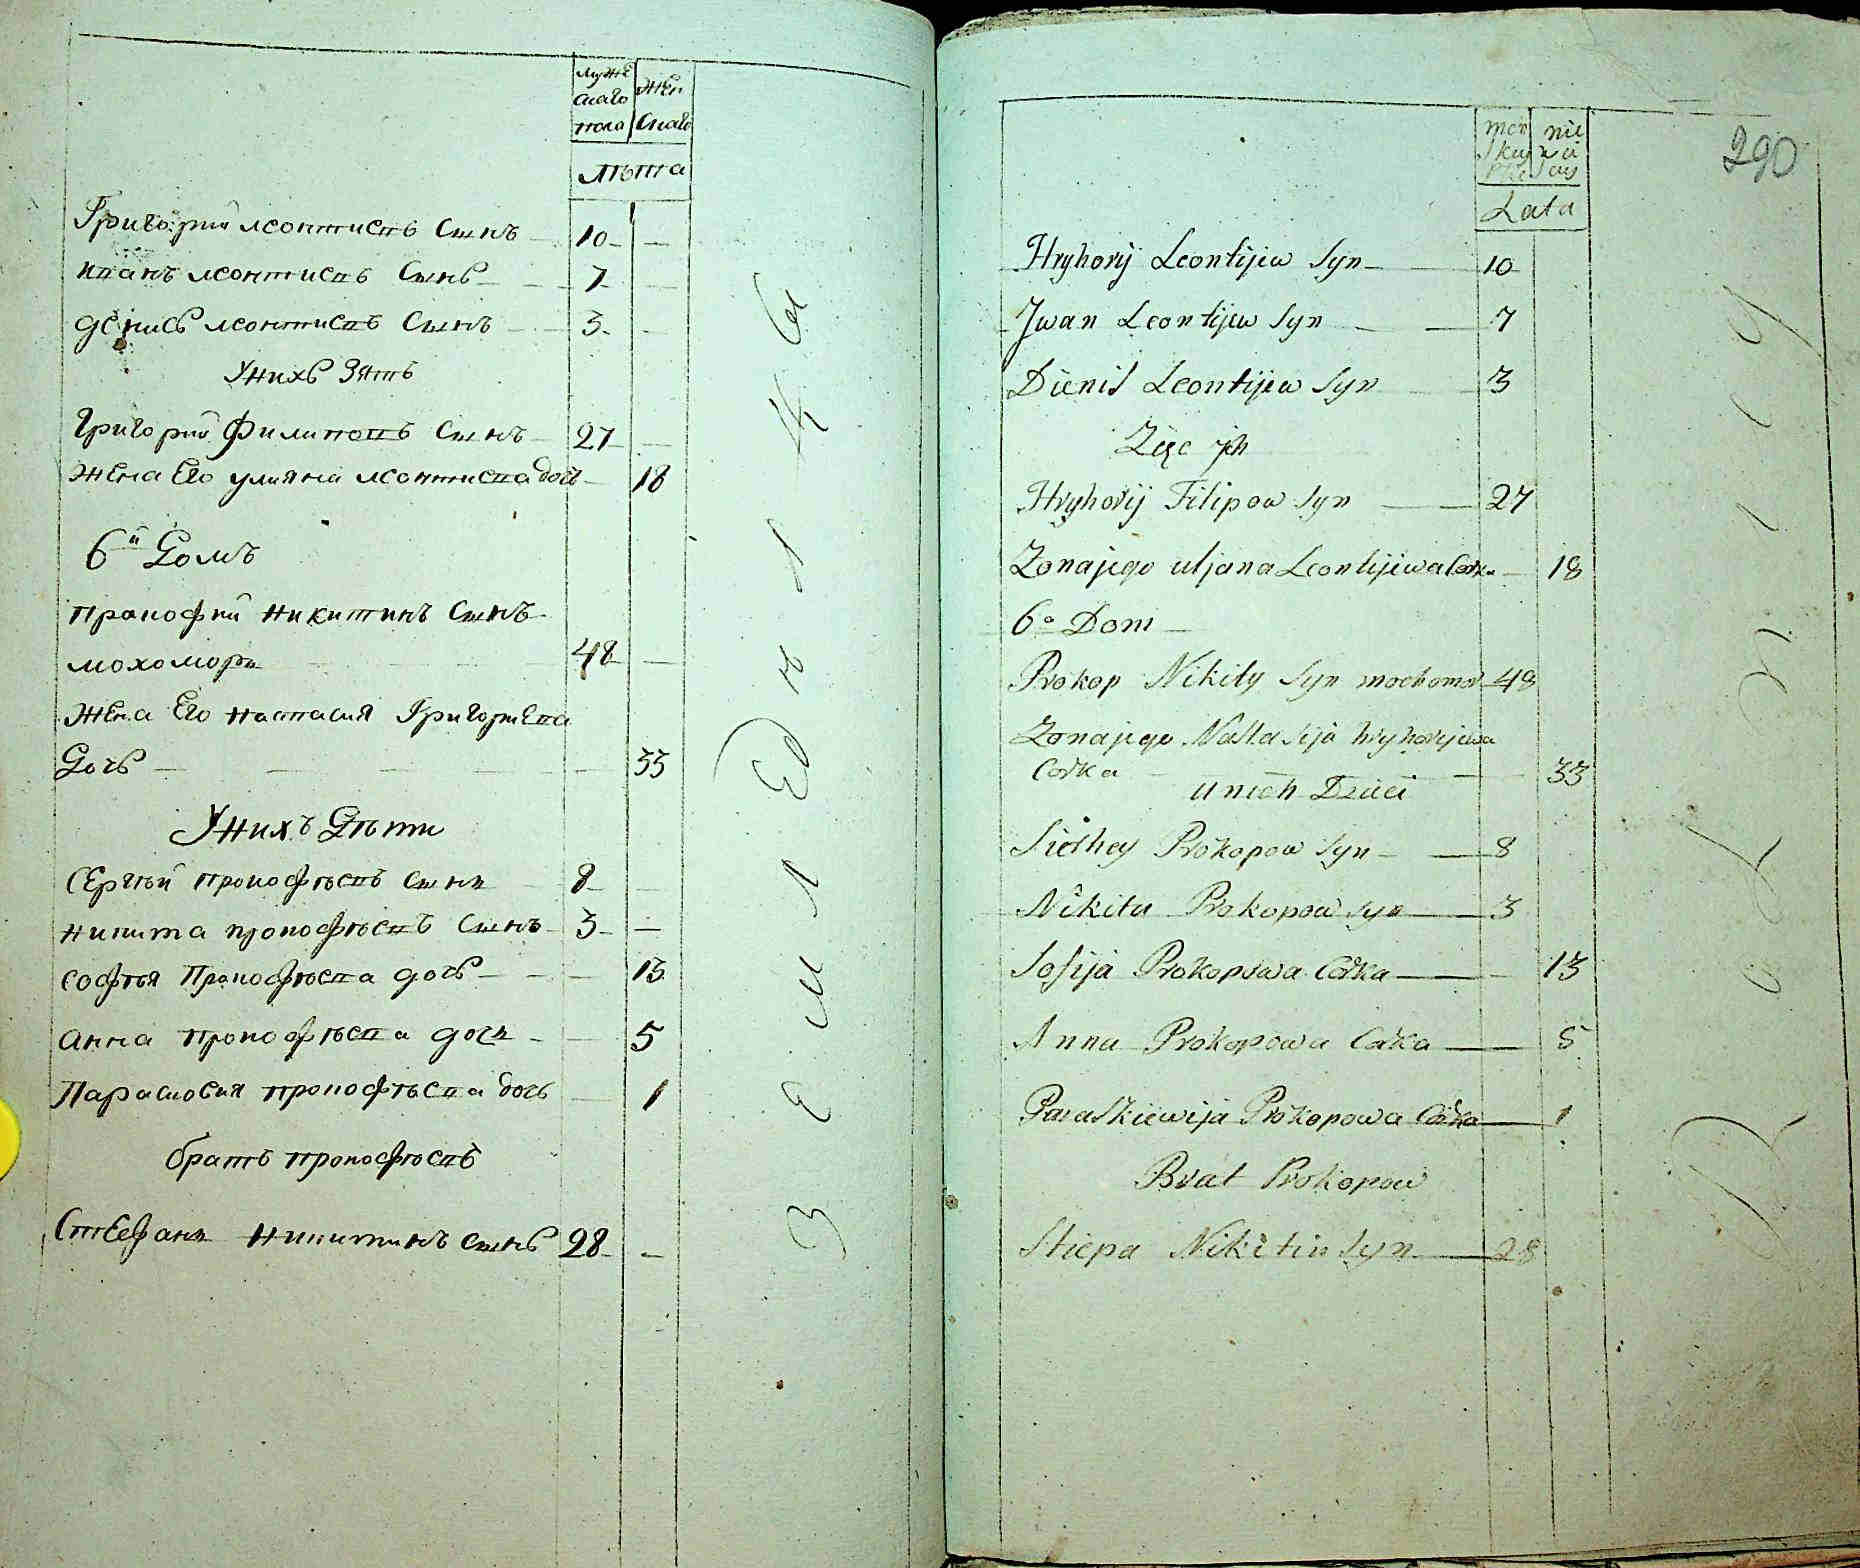 муже
скаго
пола
жен
скаго
лѣта
Григорий леонтиевъ сынъ 10
иванъ леонтиевъ сынъ 7
денисъ леонтиевъ сынъ 3
У нихъ зять
Григорий Филиповъ сынъ 27
жена Его улияна леонтиева дочь 18
6й Домъ
прокофий никитинъ сынъ
мохоморъ 48
жена Его настасия Григорьева
Дочь 33
У нихъ Дѣти
Сергѣй прокофѣевъ сынъ 8
никита прокофѣевъ сынъ 3
софья Прокофѣева дочь 13
анна прокофѣева дочь 5
Парасковия прокофѣева дочь 1
братъ прокофѣевъ
Стефанъ никитинъ сынъ 28
Земледѣл
290
Lata
Hryhorij Leontijew Syn 10
Jwan Leontijew Syn 7
Dienis Leontijew Syn 3
Zięc jch
Hryhorij Filipow Syn 27
Zona jego uljana Leontijewa Corka 18
6o Dom
Prokop Nikity Syn mochomor 48
Zona jego Nastasija hryhorijewa
Corka 33
u nich Dzieci
Sierhey Prokopow Syn 8
Nikita Prokopow Syn 3
Sofija Prokopowa Corka 13
Anna Prokopowa Corka 5
Paraskiewija Prokopowa Corka 1
Brat Prokopow
Stiepa Nikitin Syn 28
Rolnicy